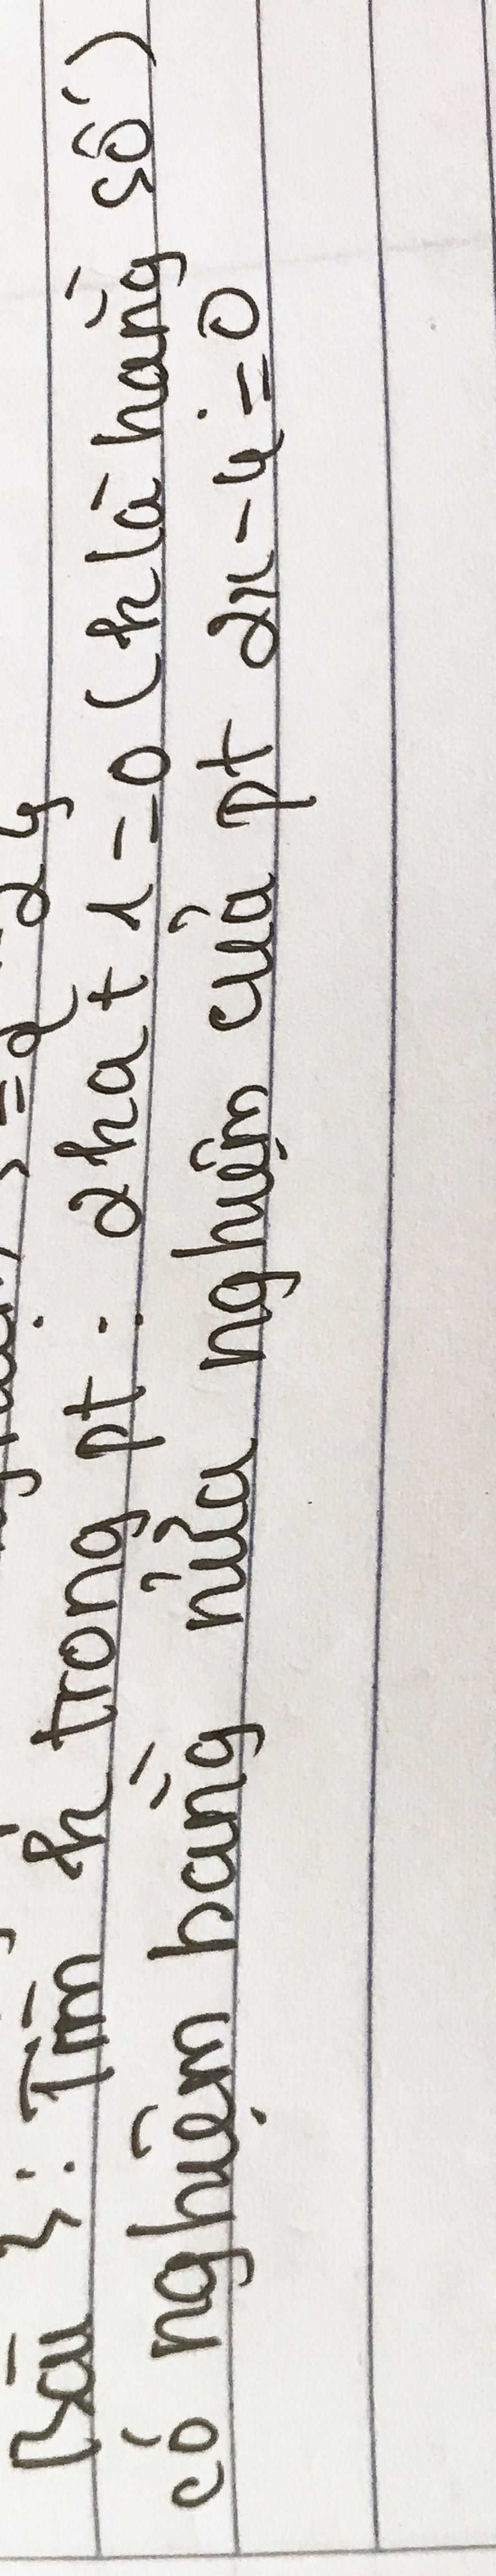 Bài 3: Tìm k trong pt: 2ka + 1 = 0 (k là hằng số)
có nghiệm bằng nửa nghiệm của pt 2x - 4 = 0